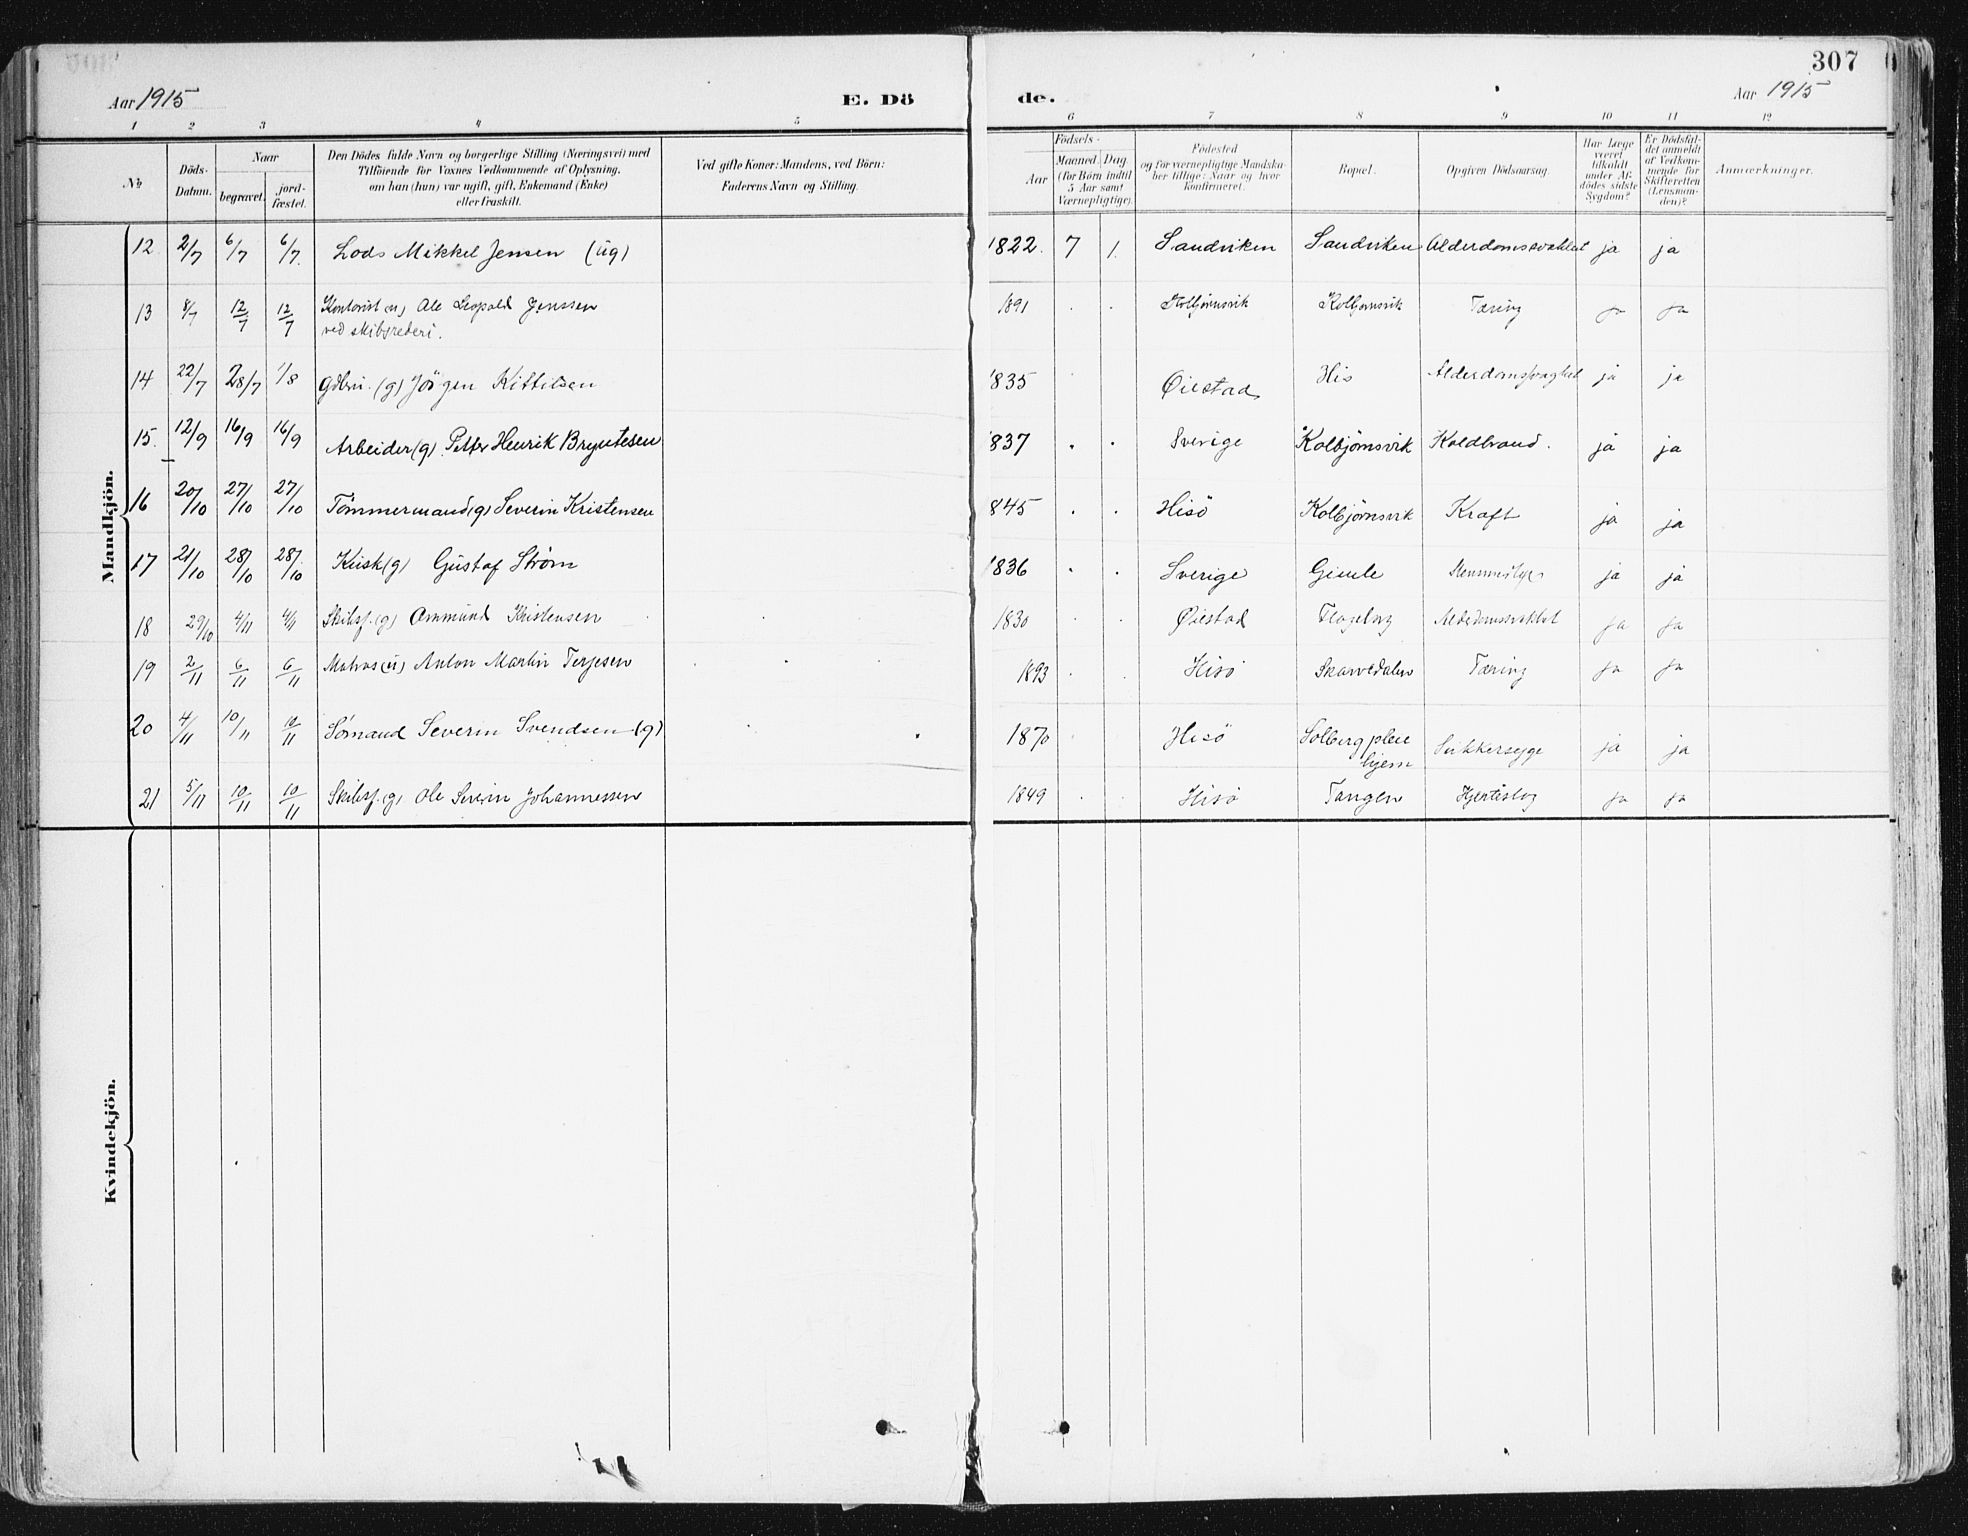 307
Aar 1915
E. Dö
de.
Aar 1915
1 2 3 4 5 6 7 8 9 10 11 12
№
Döds-
Datum.
Naar
begravet.
jord-
fæstet.
Den Dödes fulde Navn og borgerlige Stilling (Næringsvei) med
Tilföiende for Voxnes Vedkommende af Oplysning,
om han (hun) var ugift, gift, Enkemand (Enke)
eller fraskilt.
Ved gifte Koner: Mandens, ved Börn:
Faderens Navn og Stilling.
Födsels-
Aar
Maaned. Dag
(for Börn indtil
5 Aar samt
Værnepligtige).
Födested
og for værnepligtige Mandska-
ber tillige: Naar og hvor
konfirmeret.
Bopæl.
Opgiven Dödsaarsag.
Har Læge
været
tilkaldt
under Af-
dödes sidste
Sygdom?
Er Dödsfal-
det anmeldt
af Vedkom-
mende for
Skifteretten
(Lensman-
den)?
Anmærkninger.
Mandkjön.
12 2/7 6/7 6/7 Lods Mikkel Jensen (ug) 1822. 7 1. Sandviken Sandviken Alderdomssvakhet ja ja
13 8/7 12/7 12/7 Kontorist (u) Ole Leopold Jenssen 1891 Kolbjørnsvik Kolbjørnsvik Tæring ja ja
ved skibsrederi.
14 22/7 28/7 1/8 (g) Jörgen Kittilsen 1835 Øiestad His Alderdomssvaghet ja ja
15. 12/9 16/9 16/9 Arbeider (g) Petter Henrik Bryntesen 1837 Sverige Kolbjørnsvik Koldbrand. ja ja
16 20/10 27/10 27/10 Tömmermand (g) Severin Kristensen 1845 Hisö Kolbjørnsvik Kræft ja ja
17 21/10 28/10 28/10 Kusk (g) Gustaf Strøm 1836 Sverige Gimle ja ja
18 29/10 4/11 4/11 Skibsf. (g) Ommund Kristensen 1830 Øiestad Alderdomssvakhet ja ja
19 2/11 6/11 6/11 Matros (u) Anton Martin Terjesen 1893 Hisö Skarvedalen Tæring ja ja
20 4/11 10/11 10/11 Sömand Severin Svendsen (g) 1870 Hisö Solberg pleie Sukkersyge ja ja
hjem
21 5/11 10/11 10/11 Skibsf. (g) Ole Severin Johannessen 1849 Hisö Tangen Hjerteslag ja ja
Kvindekjön.